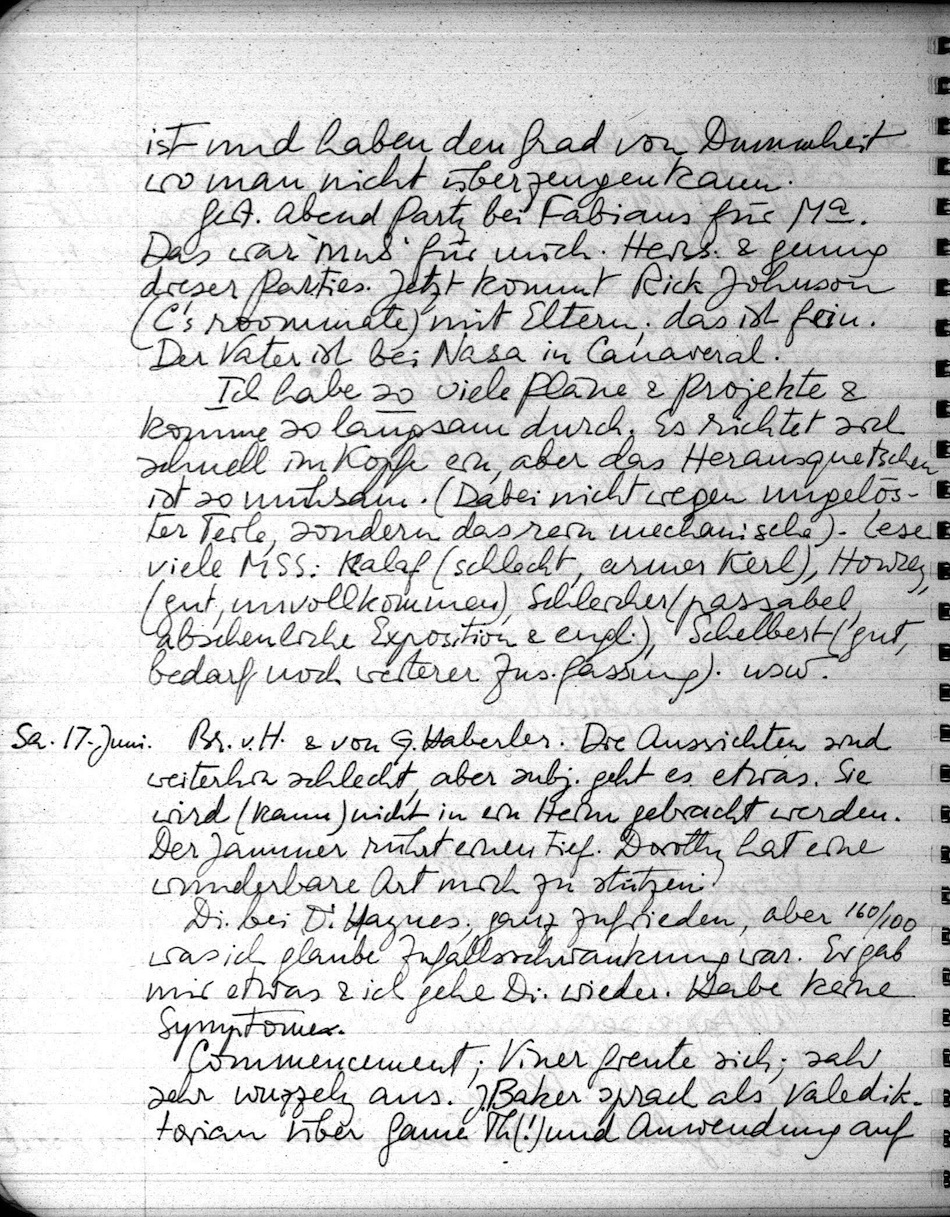 ist und haben den Grad von Dummheit
wo man nicht überzeugen kann.
Gest. Abend Party bei Fabians für Ma.
Das war "mus" für mich. Heiss. & genug
dieser parties. Jetzt kommt Rick Johnson
(C's roommate) mit Eltern; das ist fein.
Der Vater ist bei Nasa in Canaveral.
Ich habe so viele Pläne & Projekte &
komme so langsam durch. Es richtet sich
schnell im Kopfe ein, aber das Herausquetschen
ist so mühsam. (Dabei nicht wegen ungelös-
ter Teile, sondern das rein mechanische). Lese
viele MSS: Kalaf (schlecht, armer Kerl), Howrey,
(gut, unvollkommen), Schleicher (passabel,
abscheuliche Exposition & engl.), Schelbert (gut,
bedarf noch weiterer Zus.fassung). usw.
Sa. 17. Juni. Br. v. H. & von G. Haberler. Die Aussichten sind
weiterhin schlecht, aber subj. geht es etwas. Sie
wird (kann) nicht in ein Heim gebracht werden.
Der Jammer rührt einen tief. Dorothy hat eine
wunderbare Art mich zu stützen.
Di. bei D. Haynes, ganz zufrieden, aber 160/100
was ich glaube Zufallsschwankung war. Er gab
mir etwas & ich gehe Di. wieder. Habe keine
Symptome.
Commencement; Viner freute sich; sah
sehr wuzzely aus. J. Baker sprach als Valedik-
torian über Game Th(!) und Anwendung auf